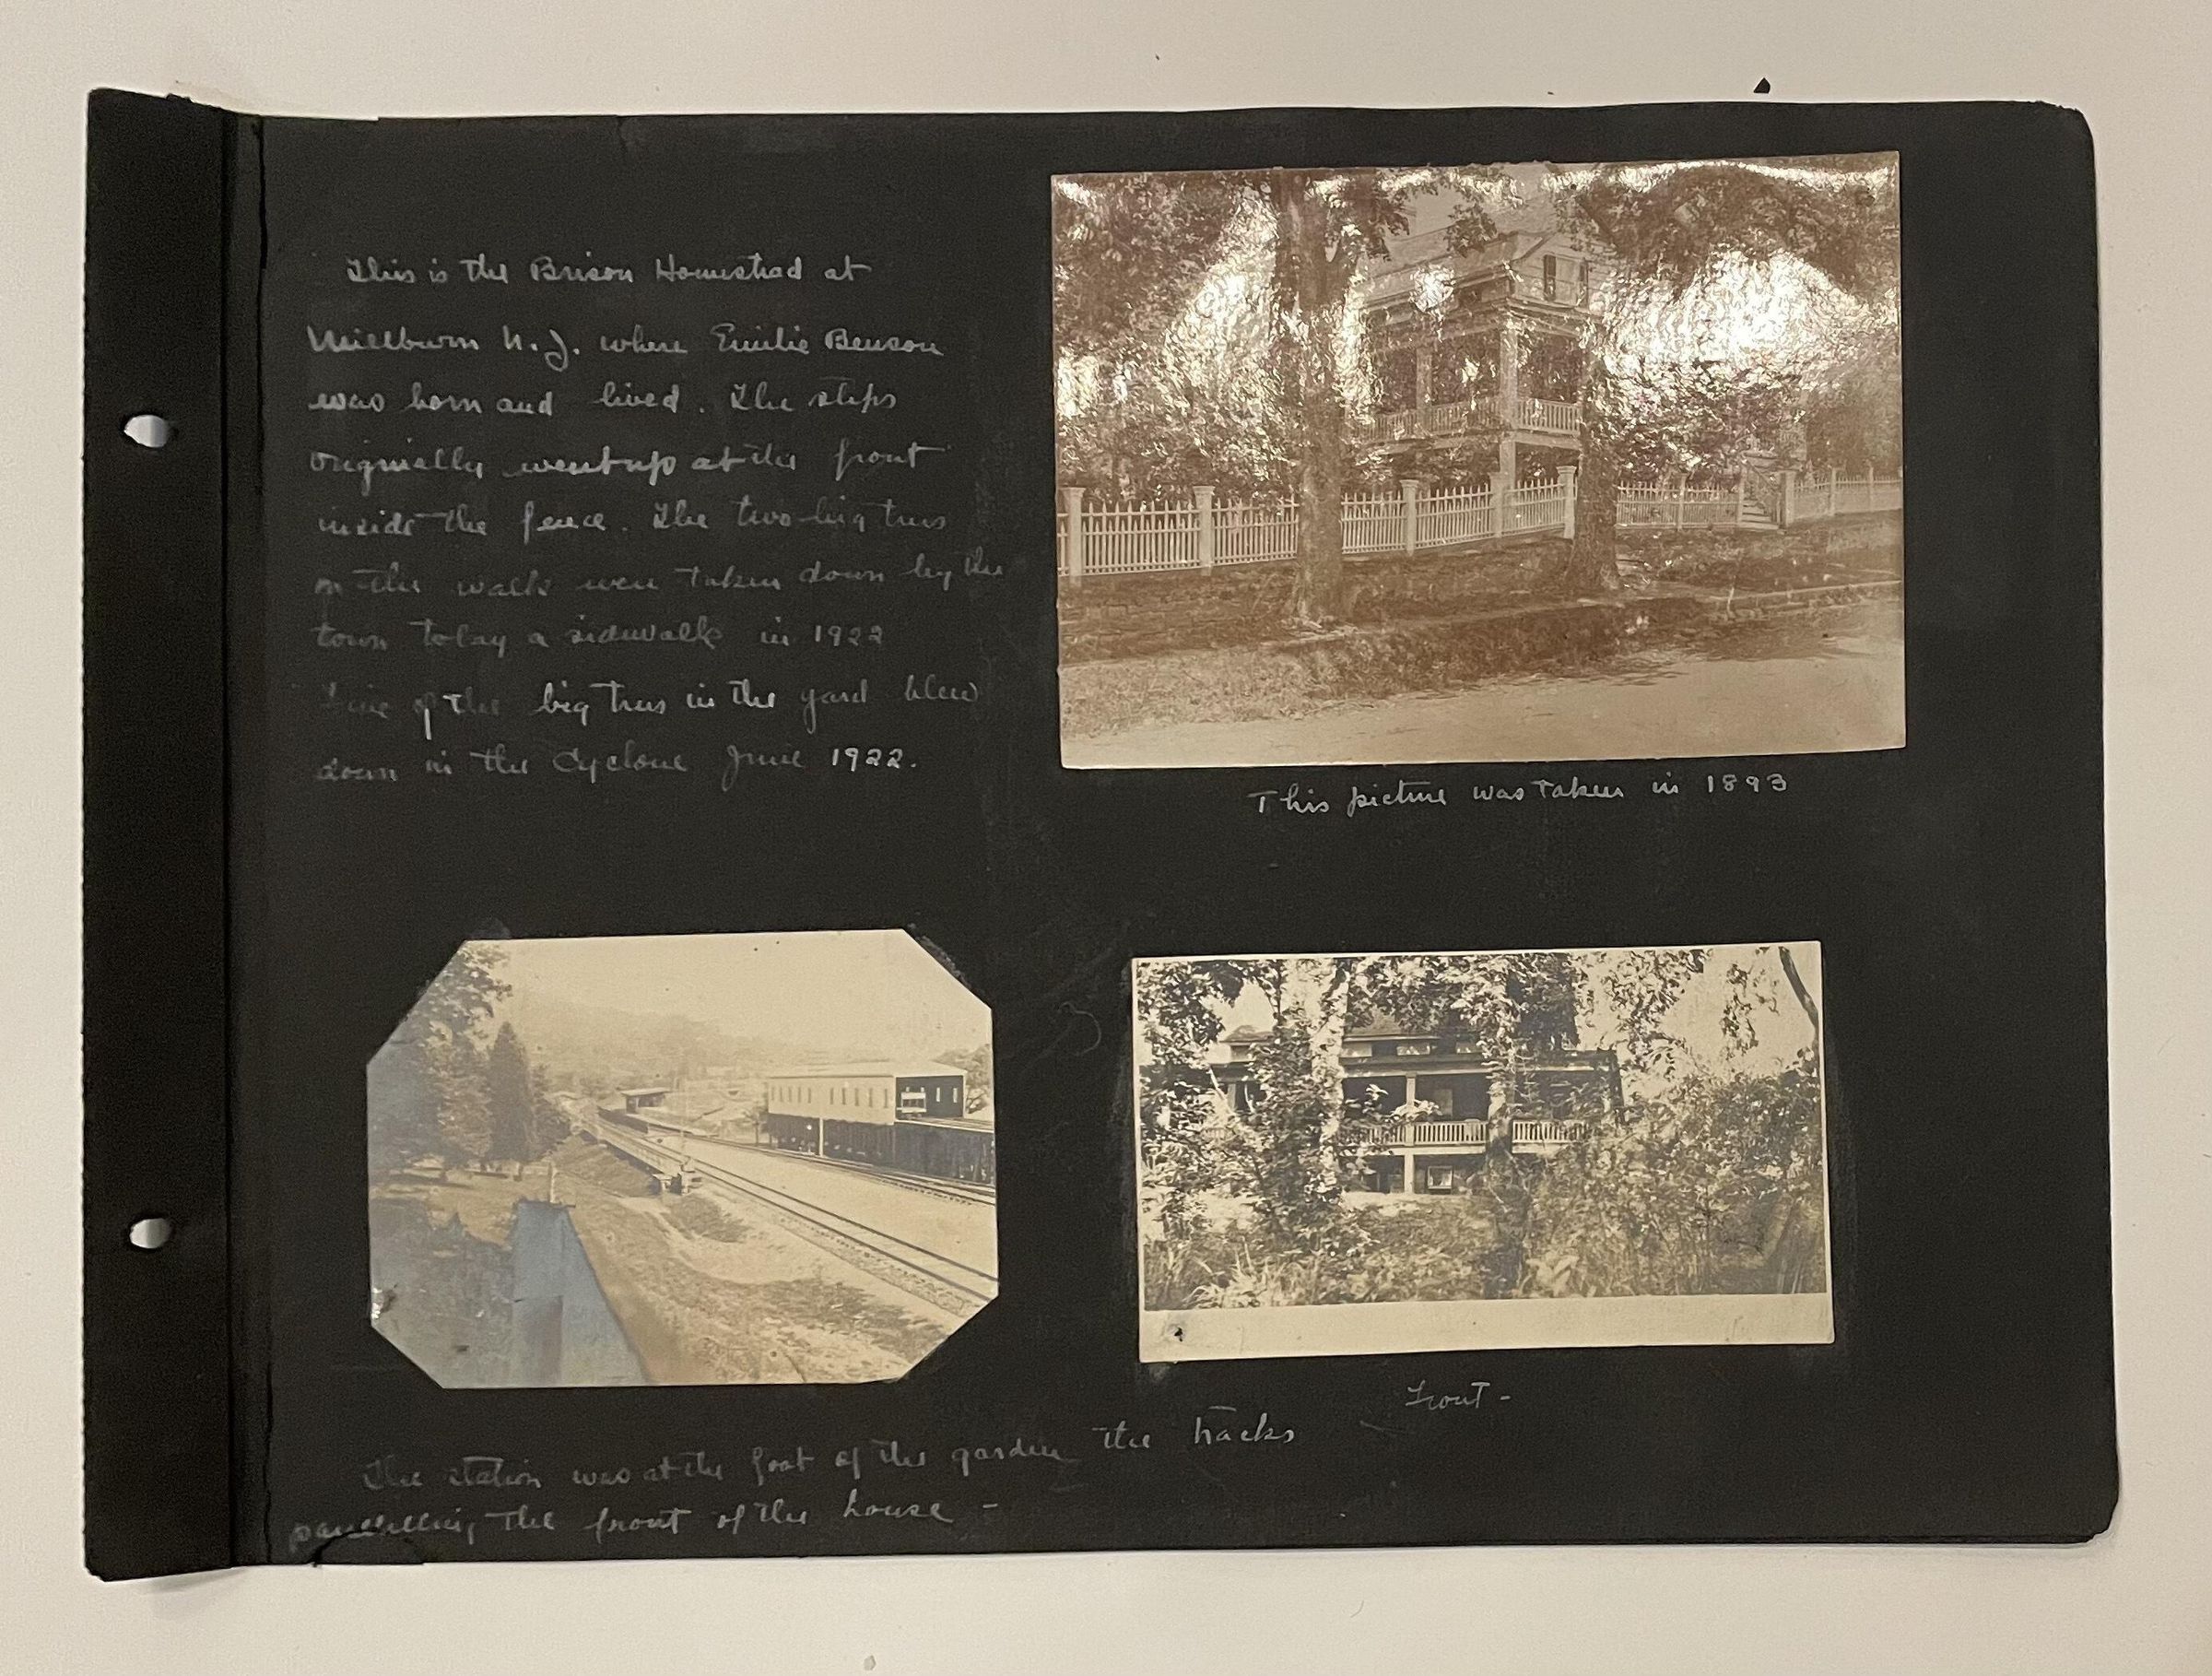 This is the Brison Homestead at
Millburn N.J. where Emilie Benson
was born and lived. The steps
originally went up at the front
inside the fence. The two big trees
on the walk were taken down by the
town to lay a sidewalk in 1922
of the big trees in the yard blew
down in the Cyclone June 1922.
This picture was taken in 1893
Front -
The station was at the foot of the garden the tracks
parelelling the front of the house -